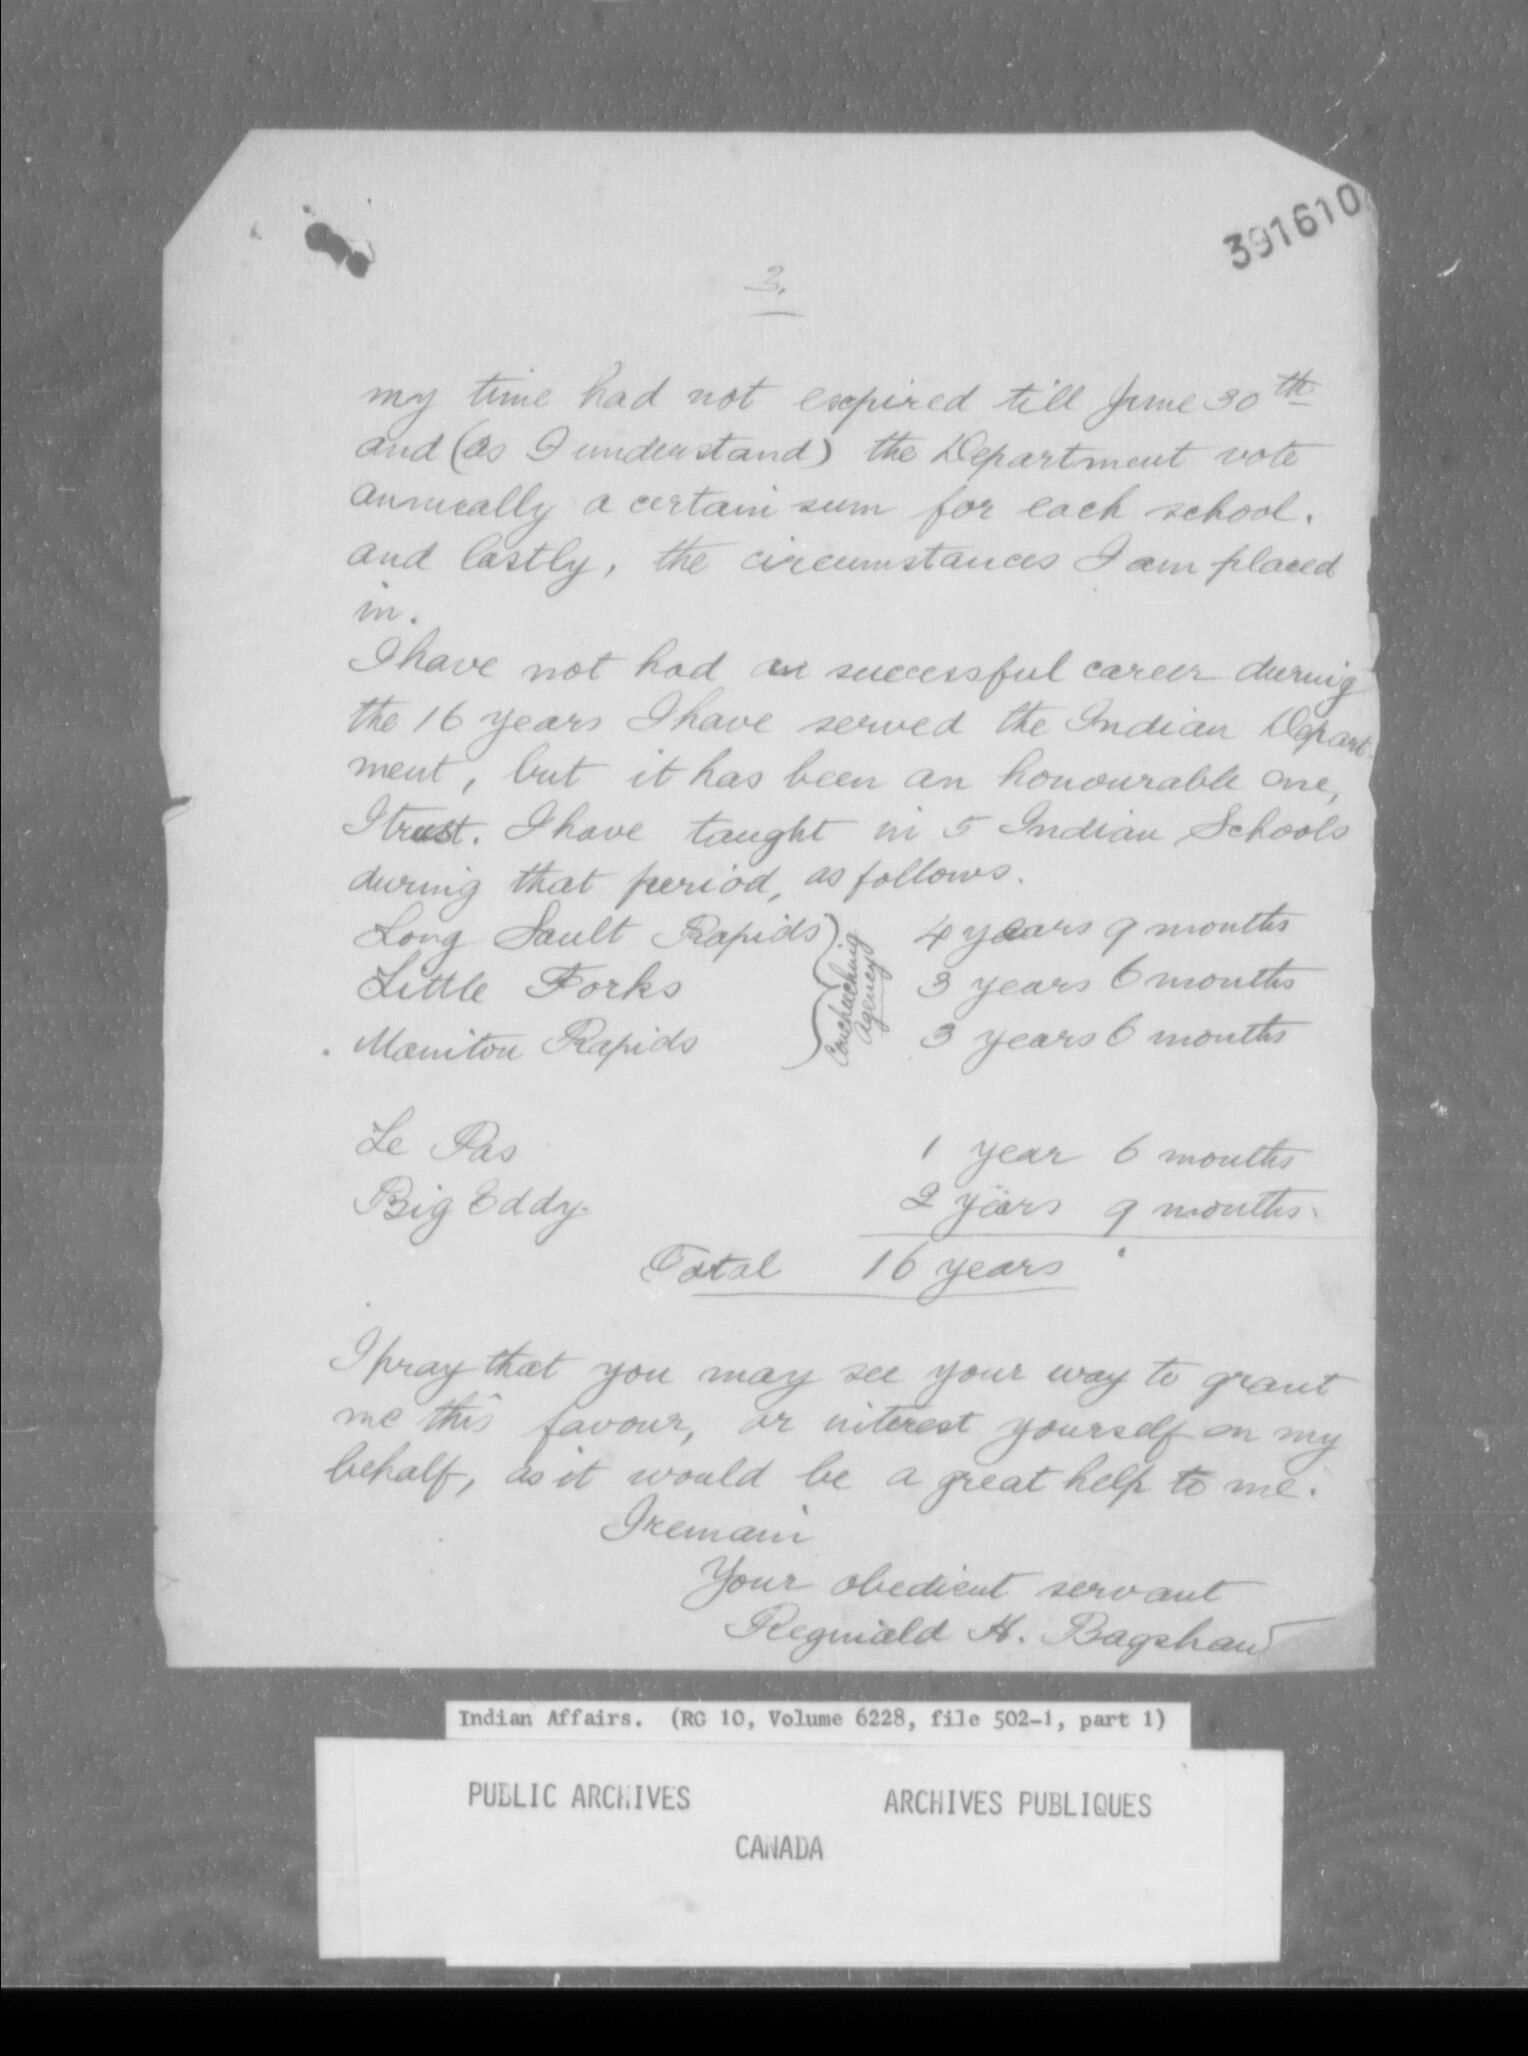 391610
3.
my time had not expired till June 30th
and (as I understand) the Department vote
annually a certain sum for each school.
and lastly, the circumstances I am placed
in.
I have not had an successful career during
the 16 years I have served the Indian Depart-
ment, but it has been an honourable one,
I trust. I have taught in 5 Indian Schools
during that period, as follows.
Long Sault Rapids 4 years 9 months
Little Forks 3 years 6 months
Manitou Rapids 3 years 6 months
Coucheeching
Agency
Le Pas 1 year 6 months
Big Eddy. 2 years 9 months.
Total 16 years
I pray that you may see your way to grant
me this favour, or interest yourself on my
behalf, as it would be a great help to me.
I remain
Your obedient servant
Reginald H. Bagshaw
Indian Affairs. (RG 10, Volume 6228, file 502-1, part 1)
PUBLIC ARCHIVES ARCHIVES PUBLIQUES
CANADA